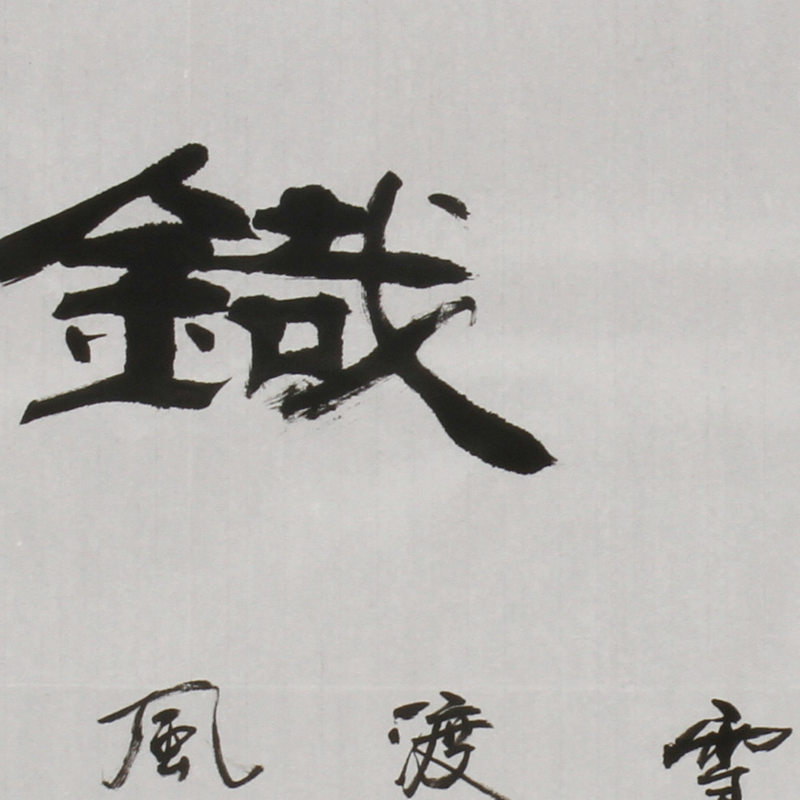 鐵
雪
渡
風